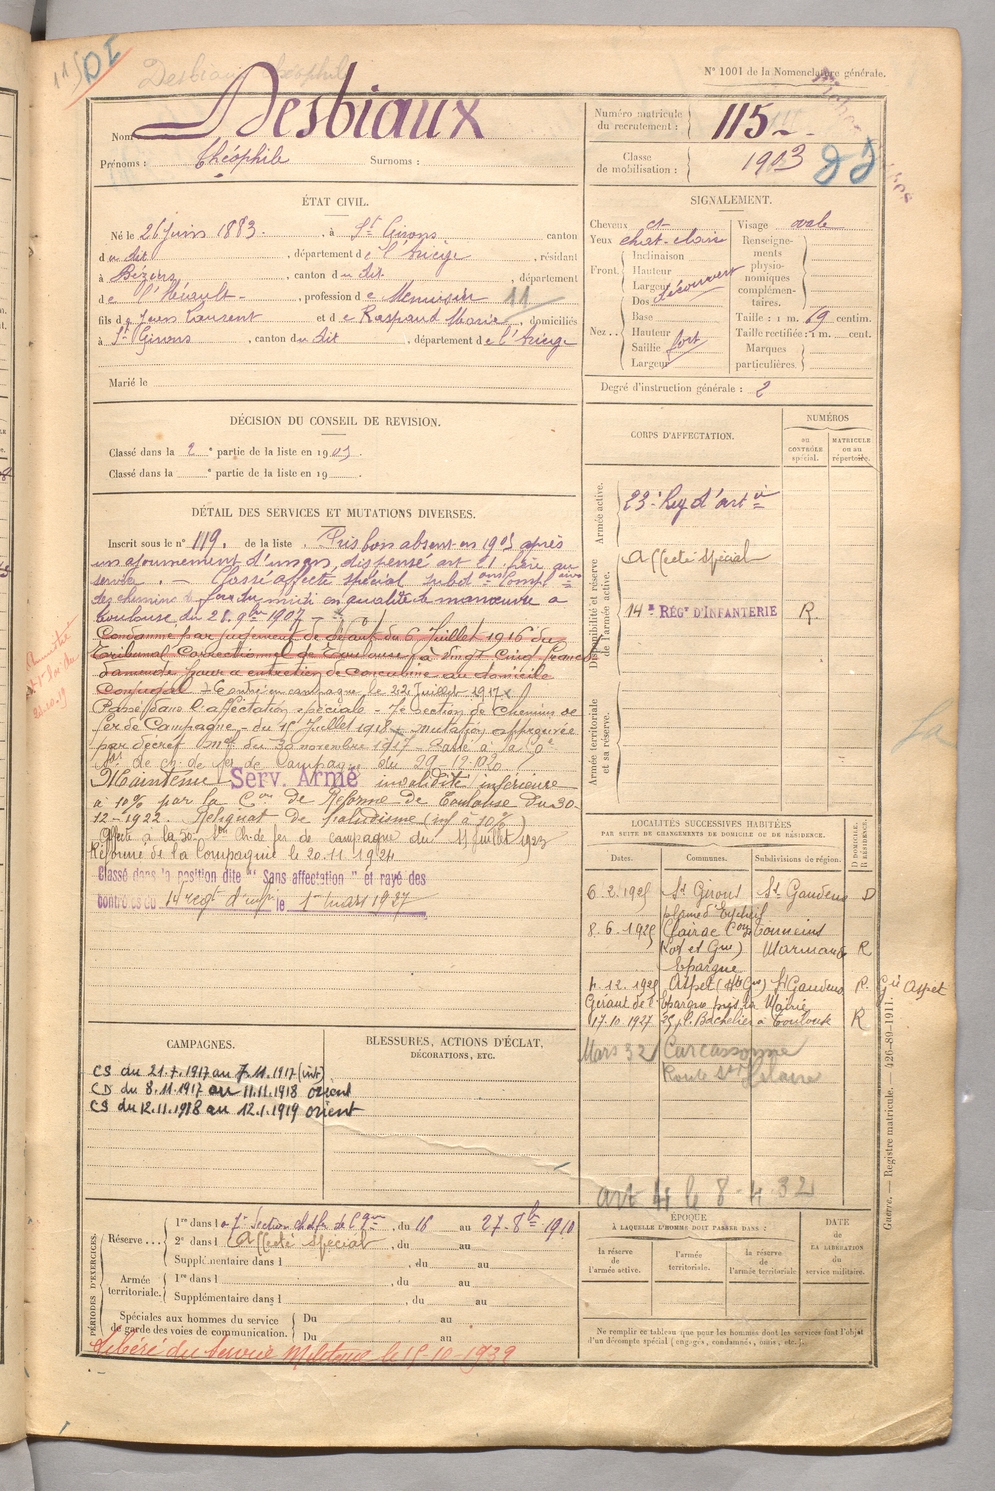 115 DI
Desbiaux Théophile
N° 1001 de la Nomenclature générale.
Nom Desbiaux
Prénoms : Théophile Surnoms :
Numéro matricule du recrutement : 115
Classe de mobilisation : 1903
ÉTAT CIVIL.
Né le 26 juin 1883. , à St Girons canton
du dit , département de l'Ariège , résidant
à Béziers , canton du dit , département
de l'Hérault , profession de Menuisier 11
fils de Jean Laurent et de Raspaud Marie , domiciliés
à St Girons , canton du dit , département de l'Ariège
Marié le
SIGNALEMENT.
Cheveux ct
Yeux chat-clair
Front Inclinaison
Hauteur
Largeur découvert
Nez Dos
Base
Hauteur
Saillie fort
Largeur
Visage ovale
Renseignements physionomiques complémentaires.
Taille : 1 m. 69 centim.
Taille rectifiée : 1 m. cent.
Marques particulières.
Degré d'instruction générale : 2
DÉCISION DU CONSEIL DE REVISION.
Classé dans la 2e partie de la liste en 1905.
Classé dans la e partie de la liste en 19 .
DÉTAIL DES SERVICES ET MUTATIONS DIVERSES.
Inscrit sous le n° 119. de la liste . Pris bon absent en 1905 après
un ajournement d'un an, dispensé art 21. frère au
service . — Classé affecté spécial subdons Complres
des chemins de fer du midi en qualité de manœuvre à
Toulouse du 28. 9bre 1907
Condamné par jugement de défaut du 6 Juillet 1916 du
Tribunal Correctionnel de Toulouse, à vingt cinq francs
d'amende pour entretien de concubine au domicile
Conjugal + Contrôé en campagne le 22 Juillet 1917 x
Passé dans l'affectation spéciale - 7e section de Chemins de
fer de Campagne - du 15 Juillet 1918 - mutation approuvée
par décret mel du 30 novembre 1917 - Passé à la
Son de ch. de fer de Campagne du 29-12-1920
Maintenu Serv. Armé invalidité inférieure
à 10% par la Con de Réforme de Toulouse du 30-
12-1922. Reliquat de paludisme (inf à 10%)
Affecté à la 50e Son Ch. de fer de campagne du 11 Juillet 1923
Réformé de la Compagnie le 20.11.1924
Classé dans la position dite " Sans affectation " et rayé des
contrôles du 14 regt d'infie le 1er mars 1927
CORPS D'AFFECTATION.
NUMÉROS
au contrôle spécial.
MATRICULE ou au répertoire.
Armée active.
23e Reg d'artie
Disponibilité et réserve de l'armée active.
Affecté spécial
14e RÉGt D'INFANTERIE R.
Armée territoriale et sa réserve.
LOCALITÉS SUCCESSIVES HABITÉES
PAR SUITE DE CHANGEMENTS DE DOMICILE OU DE RÉSIDENCE.
Dates. Communes. Subdivisions de région. D DOMICILE. R RÉSIDENCE.
6.2.1925 St Girons St Gaudens D
8.6.1925 Clairac Con Tonneins
(Lot et Gne) Marmande R
Epargne
4.12.1925 Aspet (Hte Gne) St Gaudens R. Gie Aspet
Gérant de l'Epargne près la Mairie
17.10 1927 25 pl. Bachelier à Toulouse R
Mars 32 Carcassonne
Route St Hilaire
art 4 le 8-4-32
CAMPAGNES.
CS du 21.7.1917 au 7.11.1917 (int)
CD du 8.11.1917 au 11.11.1918 orient
CS du 12.11.1918 au 12.1.1919 orient
BLESSURES, ACTIONS D'ÉCLAT,
DÉCORATIONS, ETC.
PÉRIODES D'EXERCICES.
Réserve... 1re dans la 7e Section ch. de fer de Cgne , du 16 au 27-8bre 1910
2e dans l Affecté spécial , du au
Supplémentaire dans l , du au
Armée territoriale. 1re dans l , du au
Supplémentaire dans l , du au
Spéciales aux hommes du service de garde des voies de communication. Du au
Du au
Libéré du Service Militaire le 15-10-1939
ÉPOQUE
À LAQUELLE L'HOMME DOIT PASSER DANS :
la réserve de l'armée active.
l'armée territoriale.
la réserve de l'armée territoriale
DATE DE LA LIBÉRATION du service militaire.
Ne remplir ce tableau que pour les hommes dont les services font l'objet
d'un décompte spécial (engagés, condamnés, omis, etc.).
Guerre. — Registre matricule. — 426-89-1911.